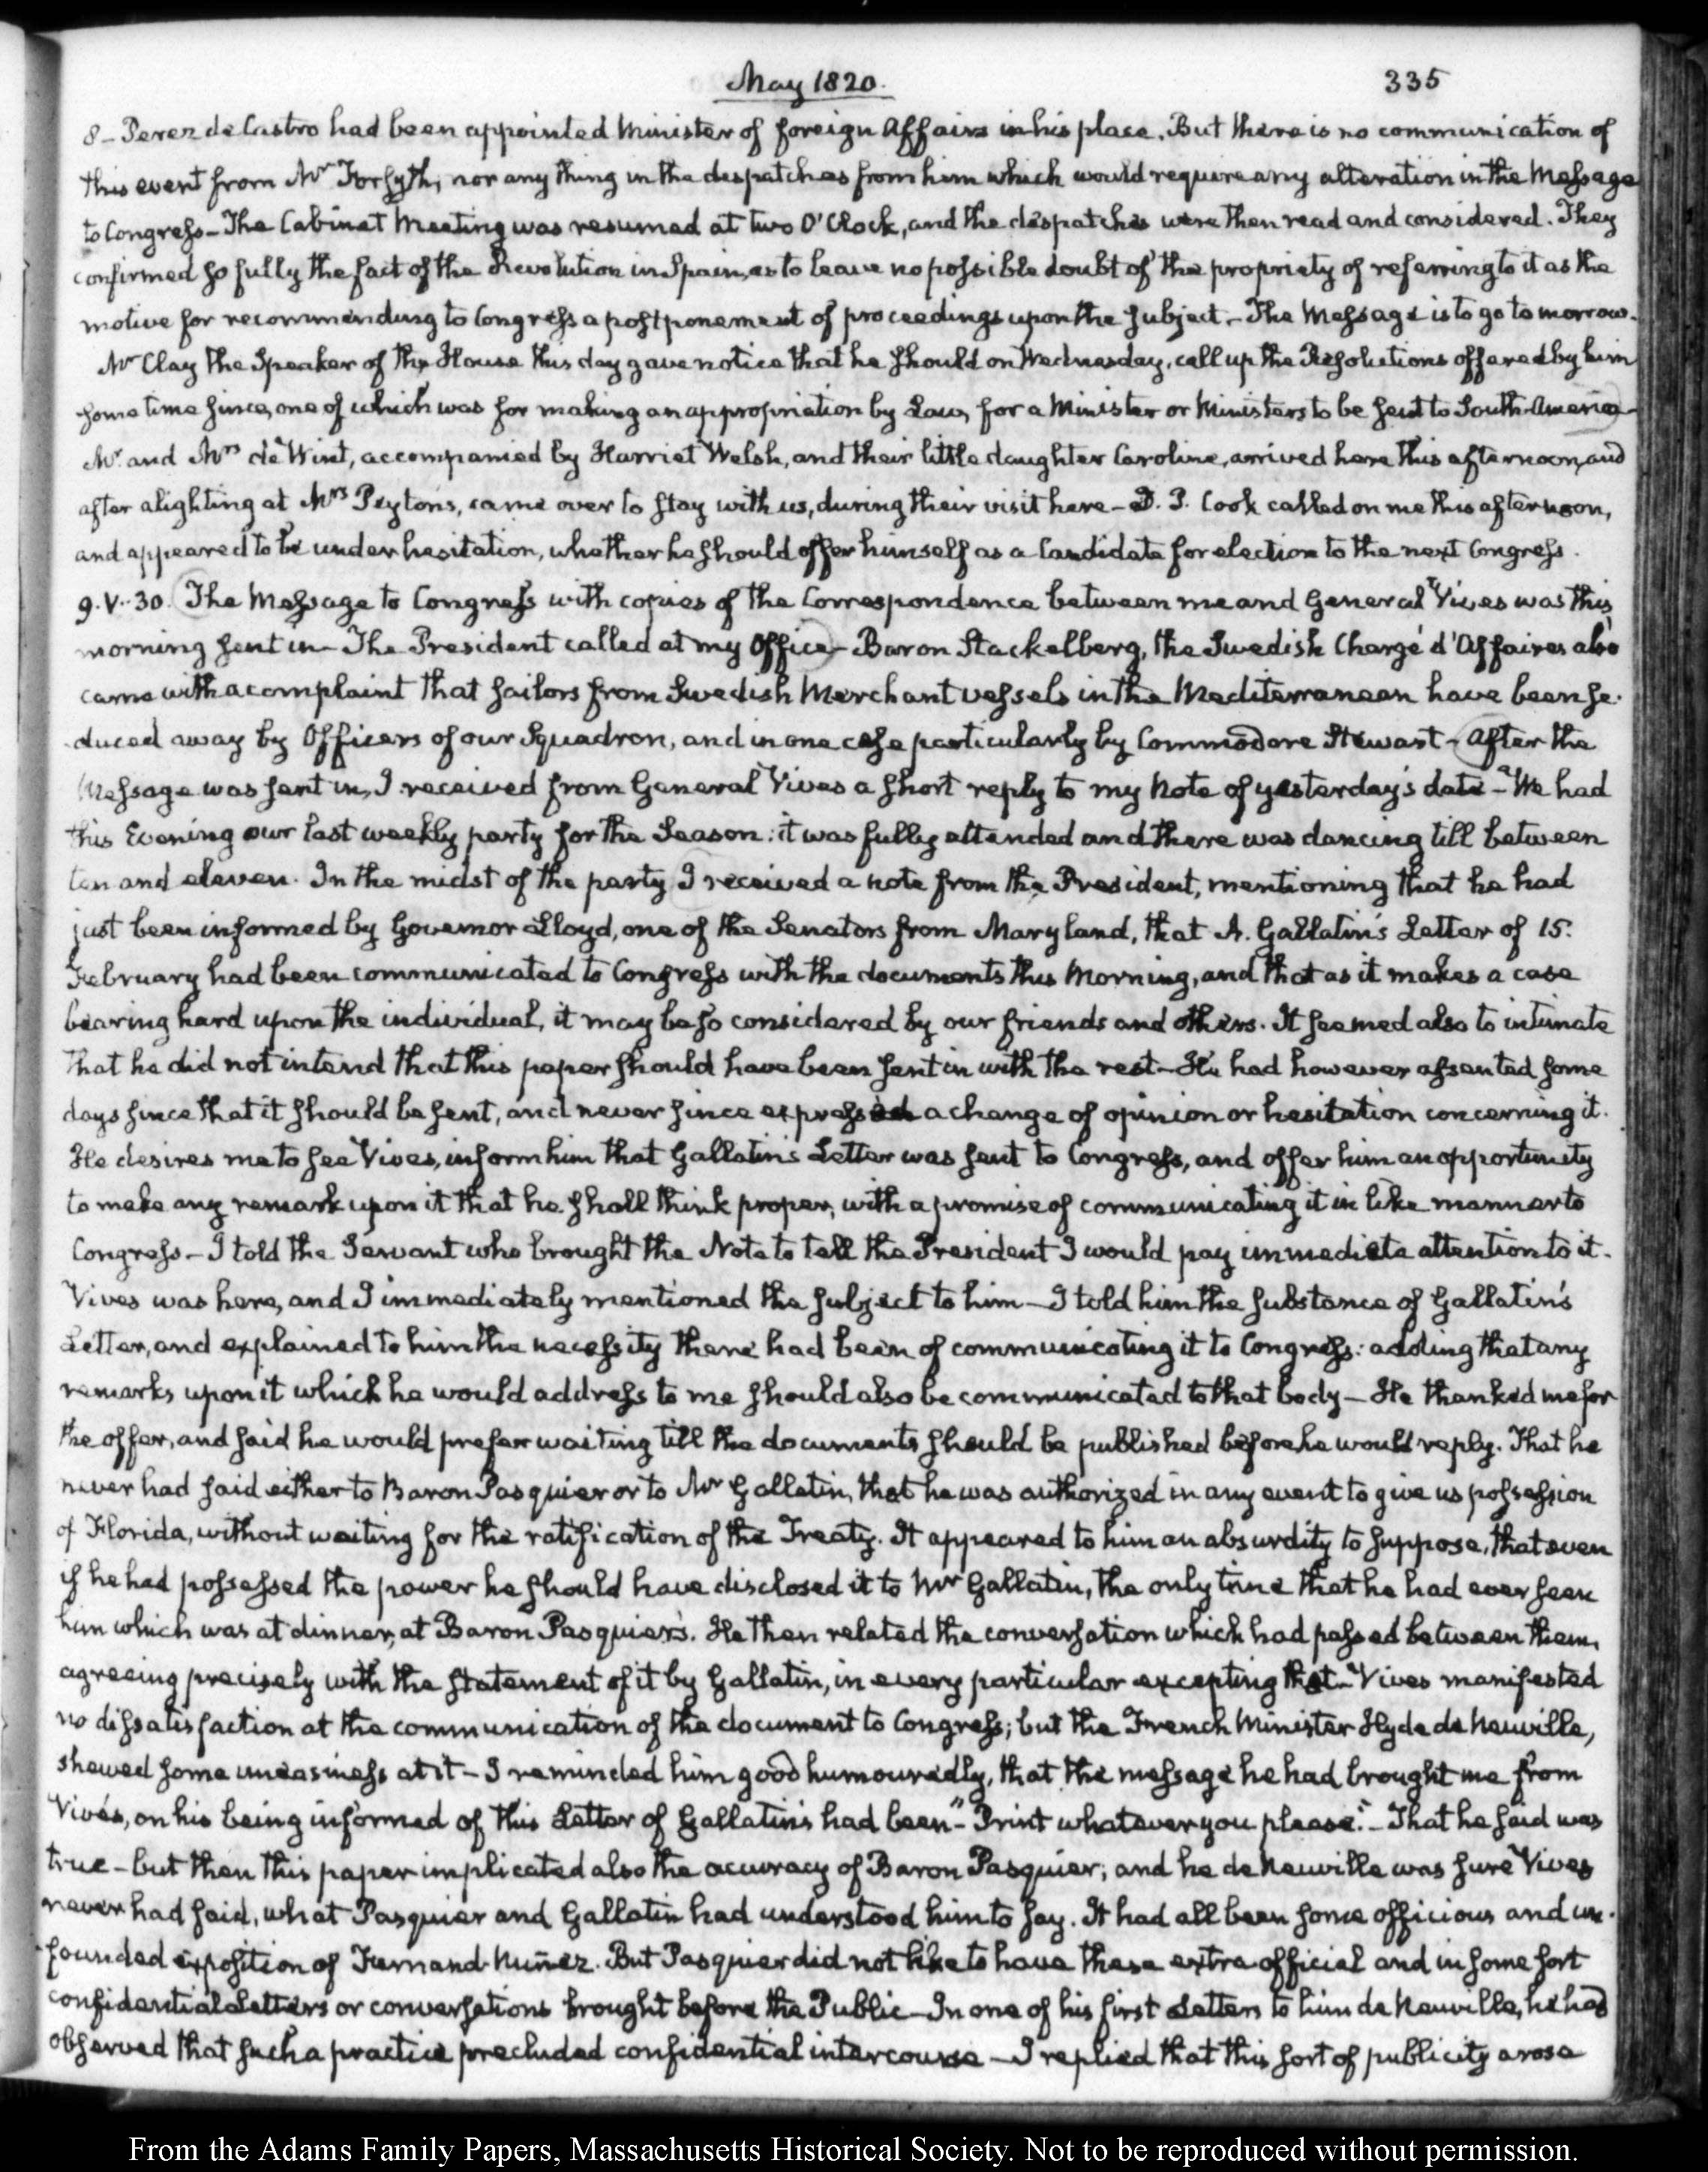 May 1820.
335
8- Perez de Castro had been appointed Minister of foreign Affairs in his place. But there is no communication of
this event from Mr Forsyth, nor any thing in the despatches from him which would require any alteration in the Message
to Congress- The Cabinet Meeting was resumed at two O'Clock, and the despatches were then read and considered. They
confirmed so fully the fact of the Revolution in Spain, as to leave no possible doubt of the propriety of referring to it as the
motive for recommending to Congress a postponement of proceedings upon the subject.- The Message is to go to morrow.
Mr Clay the Speaker of the House this day gave notice that he should on Wednesday, call up the Resolutions offered by him
some time since, one of which was for making an appropriation by Law, for a Minister or Ministers to be sent to South-America-
Mr. and Mrs de Wint, accompanied by Harriet Welsh, and their little daughter Caroline, arrived here this afternoon, and
after alighting at Mrs Peytons, came over to stay with us, during their visit here- D. P. Cook called on me this afternoon,
and appeared to be under hesitation, whether he should offer himself as a Candidate for election to the next Congress.
9. V. 30. The Message to Congress with copies of the Correspondence between me and General Vives was this
morning sent in- The President called at my Office- Baron Stackelberg, the Swedish Chargé d'Affaires also
came with a complaint that sailors from Swedish Merchant vessels in the Mediterranean have been se-
duced away by Officers of our Squadron, and in one case particularly by Commodore Stewart- After the
Message was sent in, I received from General Vives a short reply to my Note of yesterday's date- We had
this Evening our last weekly party for the Season: it was fully attended and there was dancing till between
ten and eleven. In the midst of the party I received a note from the President, mentioning that he had
just been informed by Governor Lloyd, one of the Senators from Maryland, that A. Gallatin's Letter of 15.
February had been communicated to Congress with the documents this Morning, and that as it makes a case
bearing hard upon the individual, it may be so considered by our friends and others. It seemed also to intimate
that he did not intend that this paper should have been sent in with the rest- He had however assented some
days since that it should be sent, and never since expressed a change of opinion or hesitation concerning it.
He desires me to see Vives, inform him that Gallatin's Letter was sent to Congress, and offer him an opportunity
to make any remark upon it that he shall think proper, with a promise of communicating it in like manner to
Congress- I told the Servant who brought the Note to tell the President I would pay immediate attention to it.
Vives was here, and I immediately mentioned the subject to him- I told him the substance of Gallatin's
Letter, and explained to him the necessity there had been of communicating it to Congress: adding that any
remarks upon it which he would address to me should also be communicated to that body- He thanked me for
the offer, and said he would prefer waiting till the documents should be published before he would reply. That he
never had said either to Baron Pasquier or to Mr Gallatin, that he was authorized in any event to give us possession
of Florida, without waiting for the ratification of the Treaty. It appeared to him an absurdity to suppose, that even
if he had possessed the power he should have disclosed it to Mr Gallatin, the only time that he had ever seen
him which was at dinner, at Baron Pasquier's. He then related the conversation which had passed between them,
agreeing precisely with the statement of it by Gallatin, in every particular excepting that- Vives manifested
no dissatisfaction at the communication of the document to Congress; but the French Minister Hyde de Neuville,
shewed some uneasiness at it- I reminded him good humouredly, that the message he had brought me from
Vives, on his being informed of this Letter of Gallatin's had been- "Print whatever you please."- That he said was
true- but then this paper implicated also the accuracy of Baron Pasquier; and he de Neuville was sure Vives
never had said, what Pasquier and Gallatin had understood him to say. It had all been some officious and un-
founded exposition of Fernand-Nuñez. But Pasquier did not like to have these extra-official and in some sort
confidential Letters or conversations brought before the Public- In one of his first Letters to him de Neuville, he had
observed that such a practice precluded confidential intercourse- I replied that this sort of publicity arose
From the Adams Family Papers, Massachusetts Historical Society. Not to be reproduced without permission.